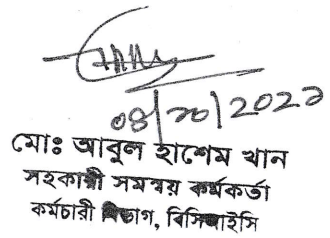 ০৪/১০/২০২১
মোঃ আবুল হাশেম খান
সহকারী সমন্বয় কর্মকর্তা
কর্মচারী বিভাগ, বিসিআইসি